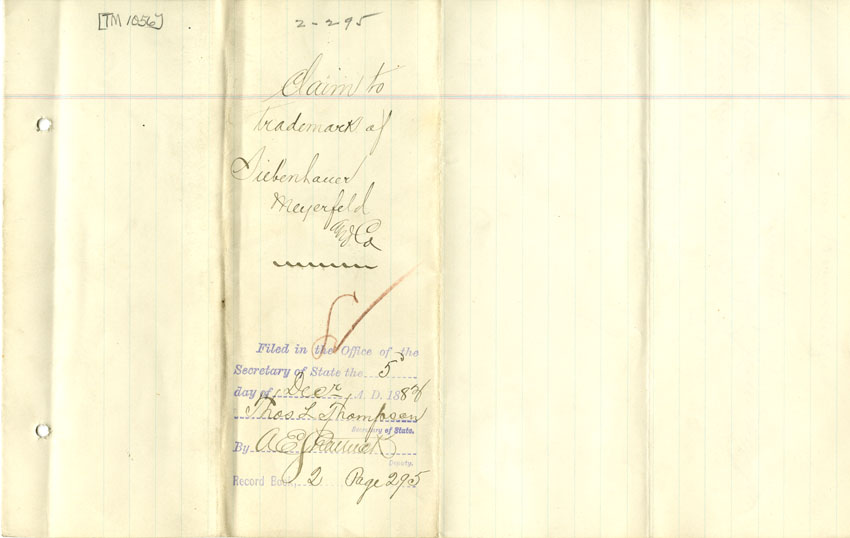 [TM 1056]
2-295
Claim to
trademark of
Siebenhauer
Meyerfeld
and Co
Filed in the Office of the
Secretary of State the 5
day of Decr A. D. 188
Thos L Thompson
Secretary of State.
By A E
Deputy.
Record Book, 2 Page 295